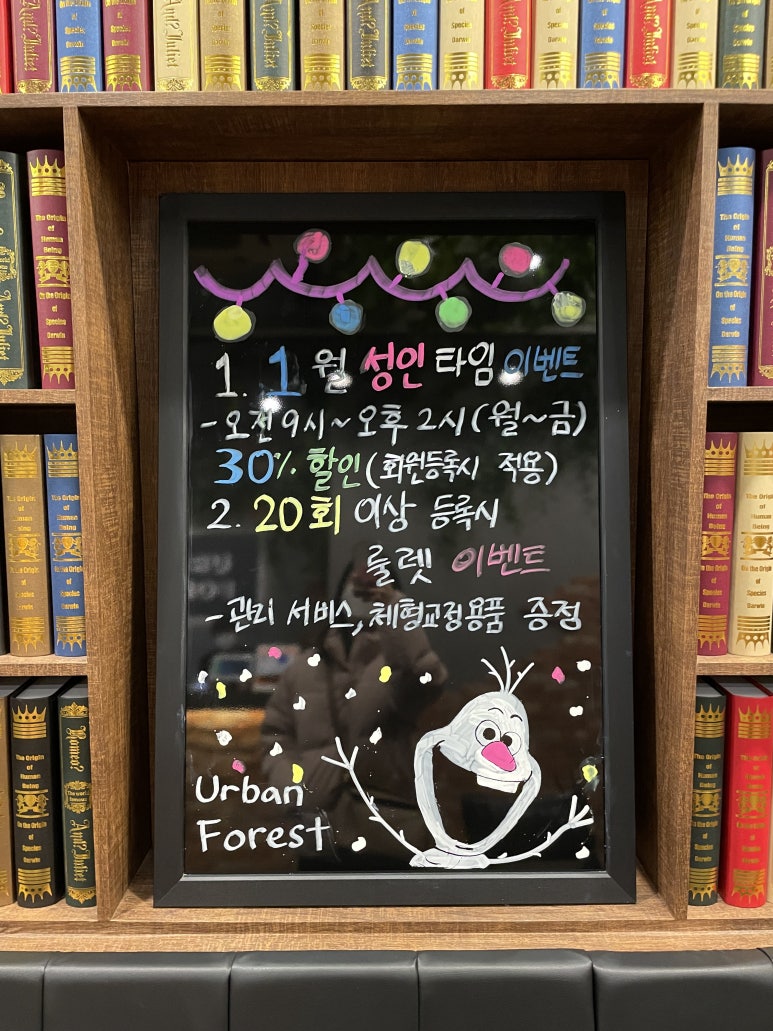 1. 1월 성인 타임 이벤트
- 오전 9시 ~ 오후 2시 (월~금)
30% 할인 (회원등록시 적용)
2. 20회 이상 등록시
룰렛 이벤트
- 관리 서비스, 체형교정용품 증정
Urban
Forest
The Origin
of
Human
Being
On the Origin
of
Species
Darwin